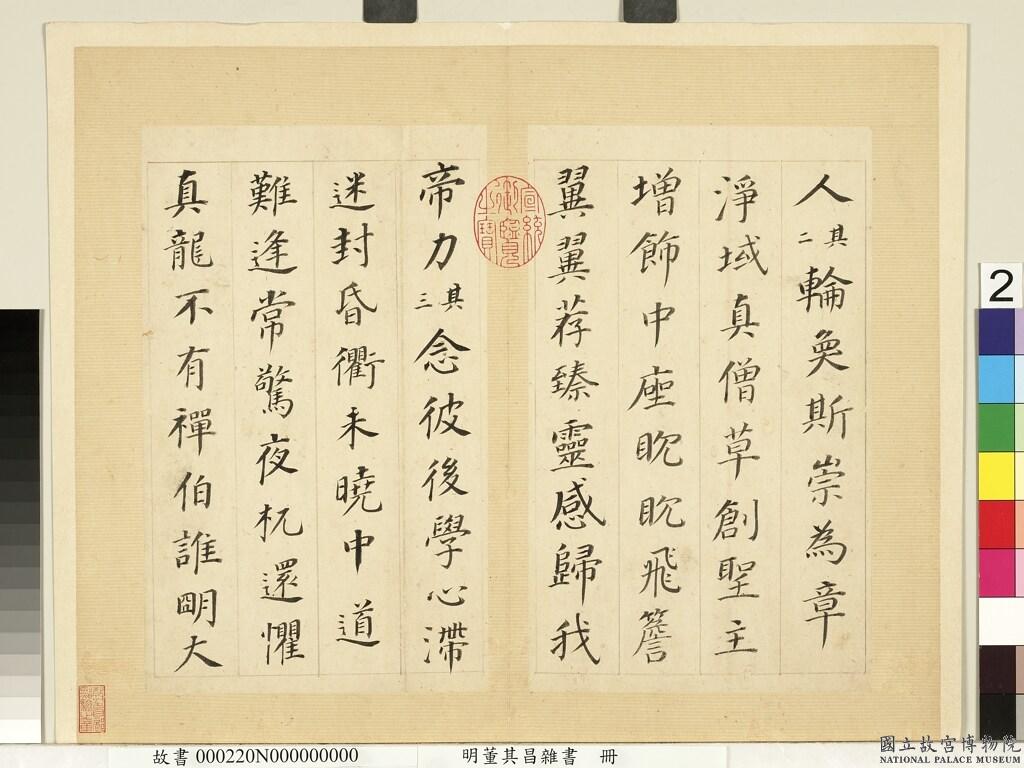 人其二輪奐斯崇為章
淨域真僧草創聖主
增飾中座眈眈飛簷
翼翼荐臻靈感歸我
帝力其三念彼後學心滯
迷封昏衢未曉中道
難逢常驚夜杌還懼
真龍不有禪伯誰明大
宣統御覽之寶
2
故書 000220N000000000
明董其昌雜書 冊
國立故宮博物院
NATIONAL PALACE MUSEUM